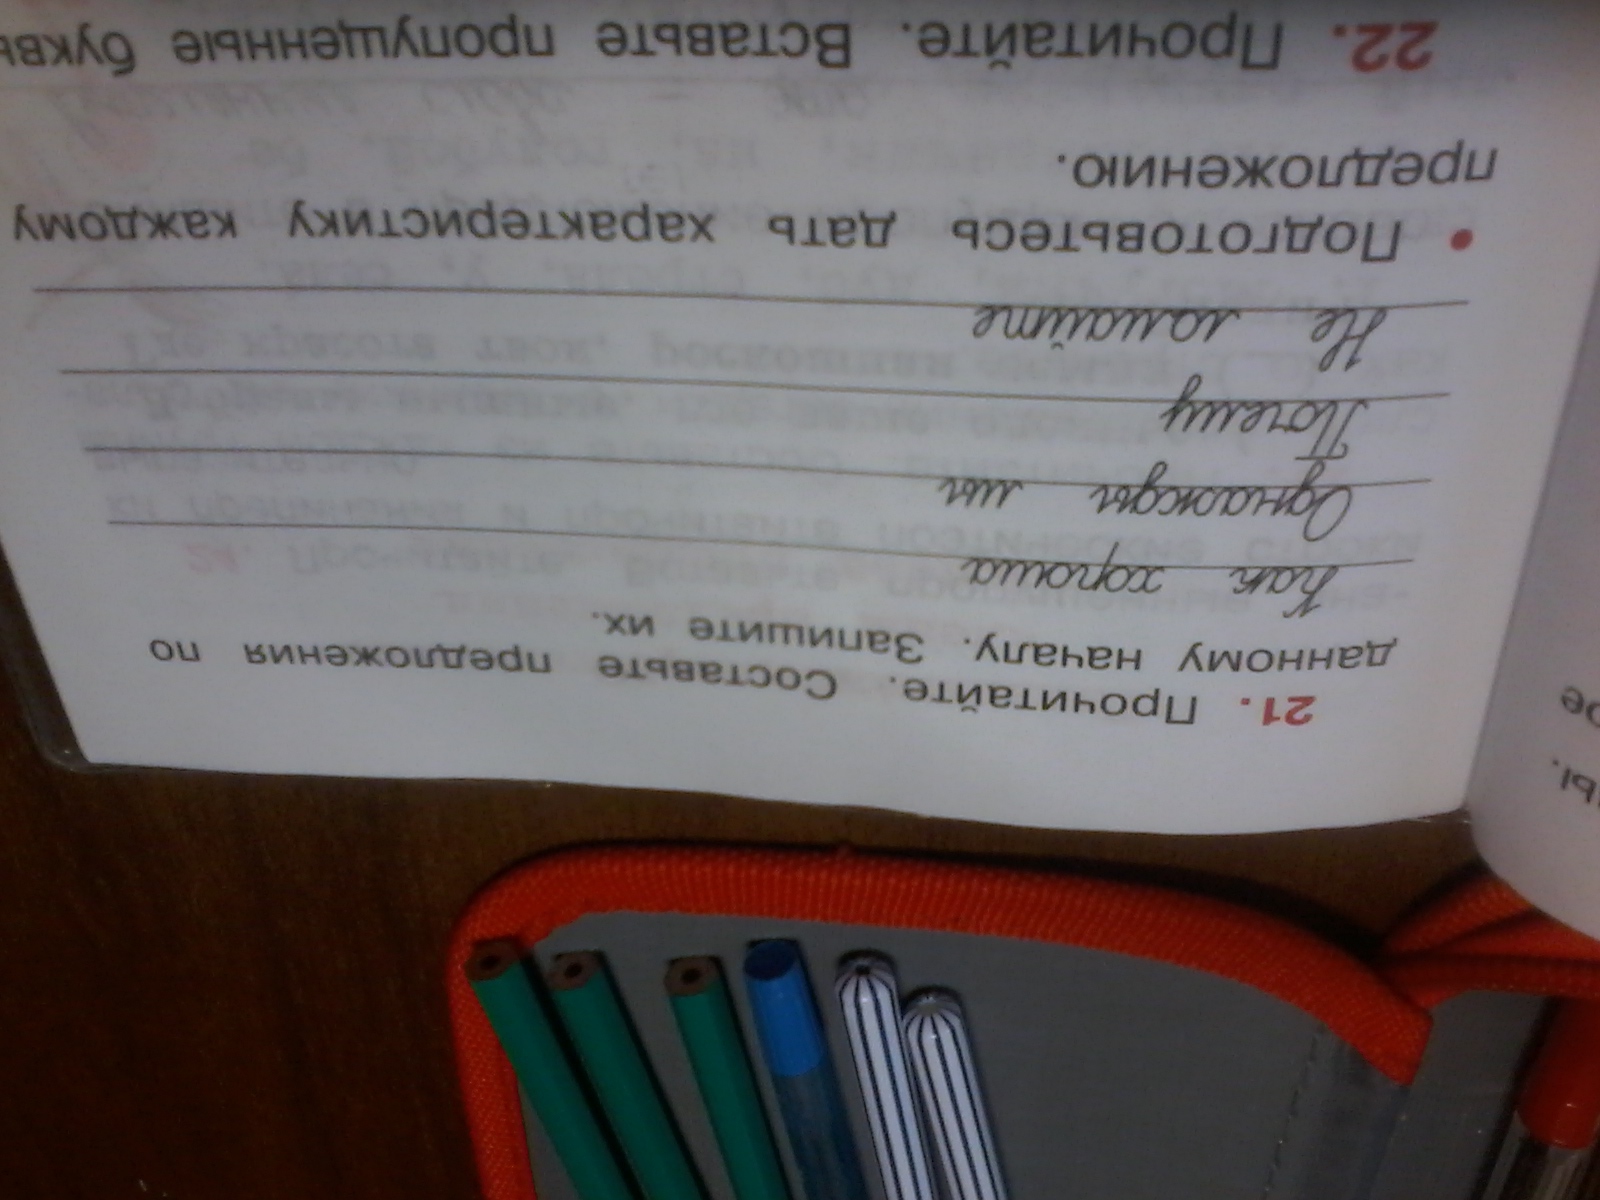 21. Прочитайте. Составьте предложения по
данному началу. Запишите их.
Как хороша
Однажды мы
Почему
Не ломайте
• Подготовьтесь дать характеристику каждому
предложению.
22. Прочитайте. Вставьте пропущенные буквы